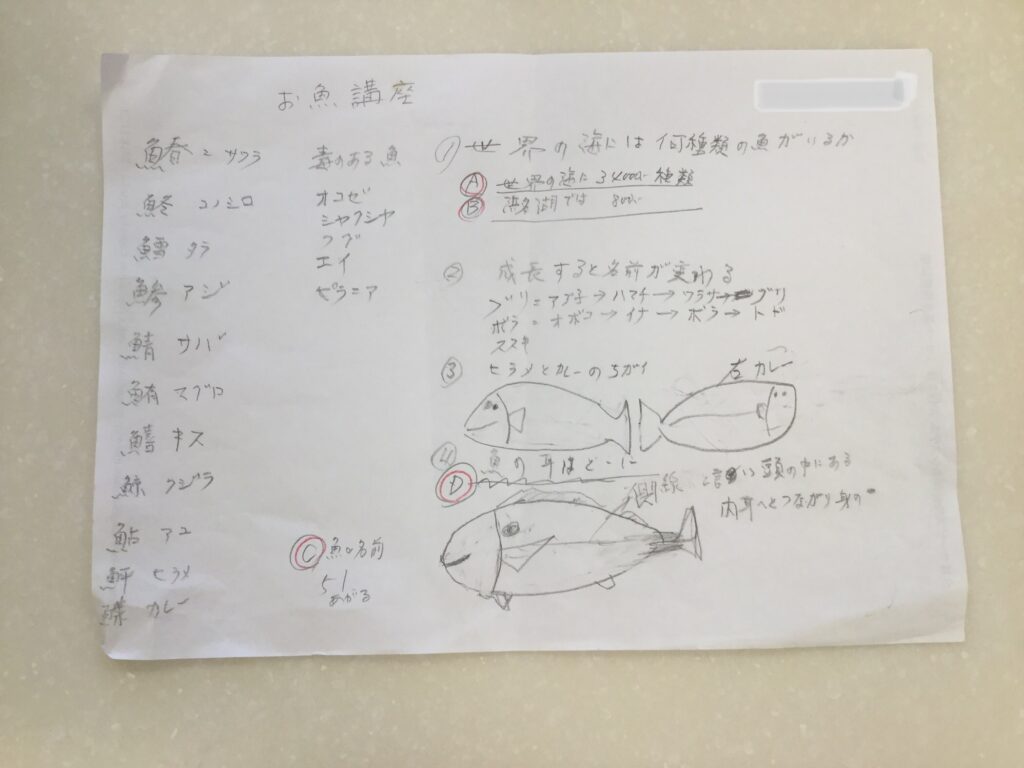 お魚講座
鰆 = サワラ
鮗 コノシロ
鱈 タラ
鰺 アジ
鯖 サバ
鮪 マグロ
鱚 キス
鯨 クジラ
鮎 アユ
鮃 ヒラメ
鰈 カレー
毒のある魚
オコゼ
フグ
エイ
ピラニア
Ⓒ 魚の名前
51
あがる
① 世界の海には何種類の魚がいるか
Ⓐ 世界の海に 34000 種類
Ⓑ 浜名湖では 800
② 成長すると名前が変わる
ブリ = アブ子→ハマチ→ワラサ→ブリ
ボラ = オボコ→イナ→ボラ→トド
スズキ
③ ヒラメとカレーのちガイ
左カレー
④ 魚の耳はどこに
Ⓓ
側線 と言い 頭の中にある
内耳へとつながり身の